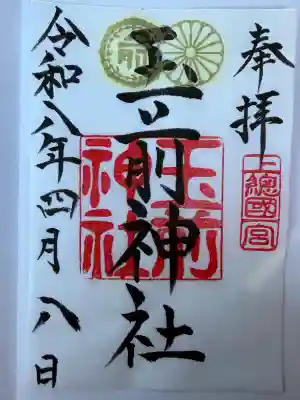 奉拝
上總國一宮
玉前神社
玉前神社
令和八年四月八日